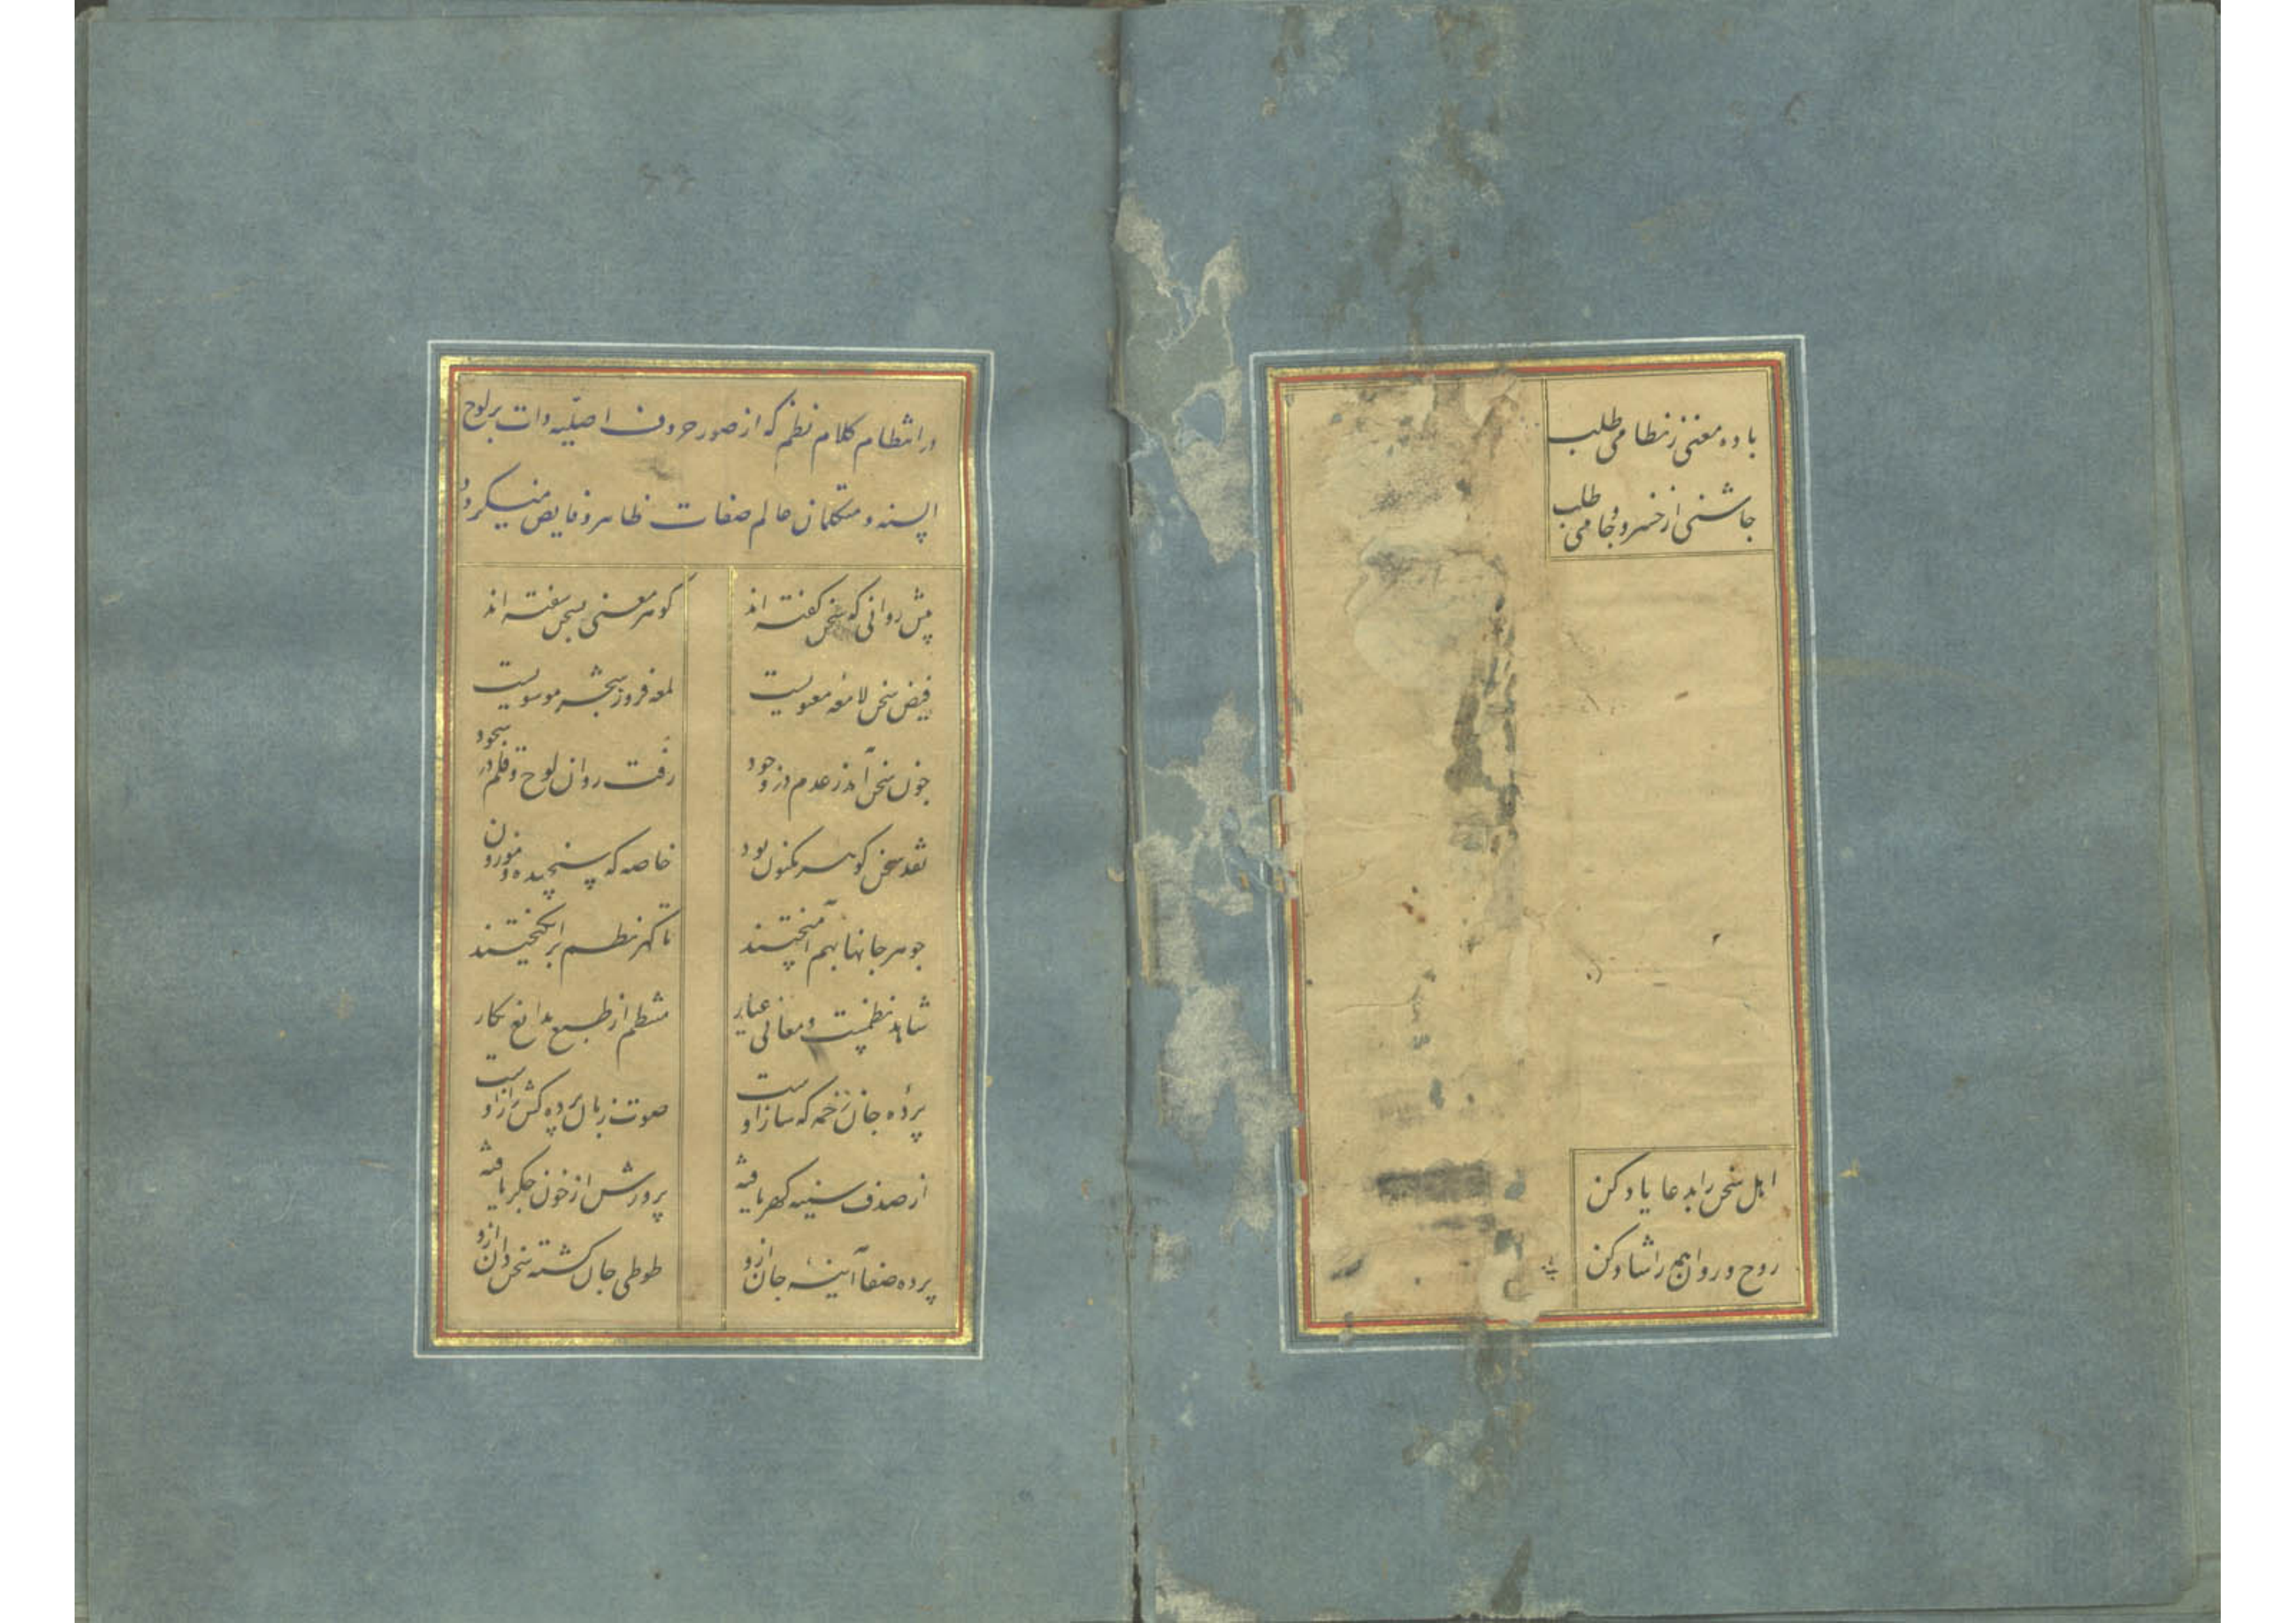 باده معنی ز نظامی طلب
چاشنی از خسرو و جامی طلب
اهل سخن را بدعا یاد کن
روح و روان همه را شاد کن
در انتظام کلام نظم که از صور حروف اصلیه ذات بر لوح
السنه متکلمان عالم صفات ظاهر و فایض میکردد
پیش روانی که سخن کفته اند
کوهر معنی بسخن سفته اند
فیض سخن لامعه معنویست
لمعه فروز شجر موسویست
چون سخن آمد ز عدم در وجود
رفت روان لوح و قلم در سجود
نقد سخن کوهر مکنون بود
خاصه که سنجیده و موزون بود
جوهر جانها بهم آمیختند
تا کهر نظم برانکیختند
شاهد نظمست و معانی عیار
منتظم از طبع بدایع نکار
پرده جان زخمه که ساز اوست
صوت زبان پرده کش راز اوست
از صدف سینه کهر یافته
پرورش از خون جکر یافته
پرده صفا آینه جان ازو
طوطی جان کشته سخن دان ازو